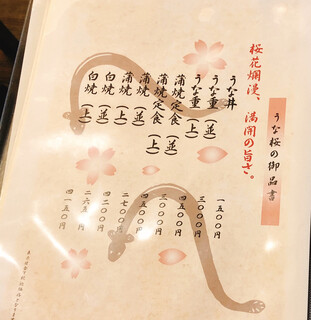 うな桜の御品書
桜花爛漫、満開の旨さ。
うな丼 一五〇〇円
うな重(並) 三〇〇〇円
うな重(上) 四五〇〇円
蒲焼定食(並) 三〇〇〇円
蒲焼定食(上) 四五〇〇円
蒲焼(並) 二七〇〇円
蒲焼(上) 四二〇〇円
白焼(並) 二六五〇円
白焼(上) 四一五〇円